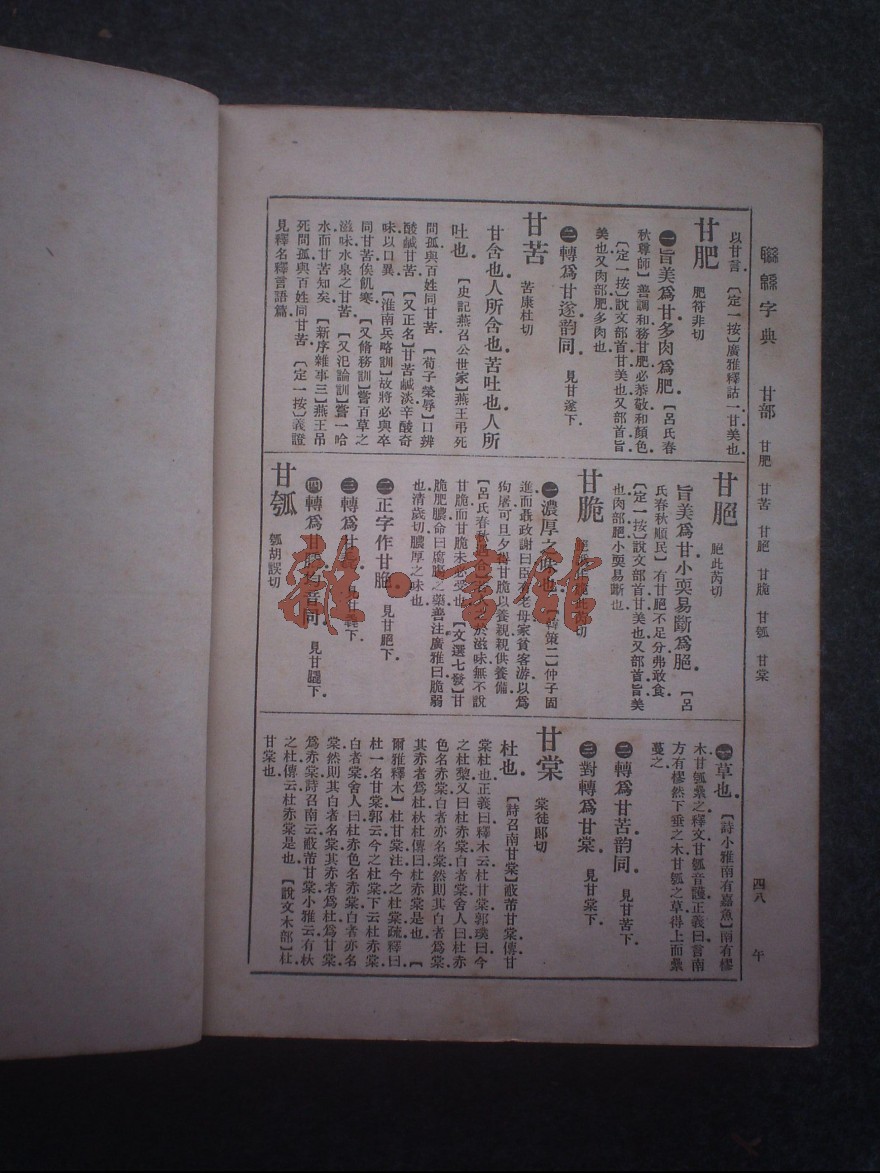 聯緜字典　甘部　甘肥　甘苦　甘脃　甘脆　甘瓠　甘棠　四八　午
以甘言。【定一按】廣雅釋詁一甘美也。
甘肥　肥符非切
㊀旨美爲甘多肉爲肥。【呂氏春
秋尊師】善調和務甘肥必恭敬和顏色。
【定一按】說文部首甘美也又部首旨
美也又肉部肥多肉也。
㊁轉爲甘遂韵同。　見甘遂下。
甘苦　苦康杜切
甘含也人所含也苦吐也人所
吐也。【史記燕召公世家】燕王弔死
問孤與百姓同甘苦。【荀子榮辱】口辨
酸鹹甘苦。【又正名】甘苦鹹淡辛酸奇
味以口異。【淮南兵略訓】故將必與卒
同甘苦俟飢寒。【又脩務訓】嘗百草之
滋味水泉之甘苦。【又氾論訓】嘗一哈
水而甘苦知矣。【新序雜事三】燕王弔
死問孤與百姓同甘苦。【定一按】義證
見釋名釋言語篇。
甘脃　脃此芮切
旨美爲甘小耎易斷爲脃。【呂
氏春秋順民】有甘脃不足分弗敢食。
【定一按】說文部首甘美也又部首旨美
也肉部脃小耎易斷也。
甘脆
㊀濃厚之味也。【韓策二】仲子固
進而聶政謝曰臣有老母家貧客游以爲
狗屠可旦夕得甘脆以養親親供養備。
【呂氏春秋
甘脆而甘脆未必受也。【文選七發】甘
脆肥膿命曰腐腸之藥善注廣雅曰脆弱
也清歲切膿厚之味也。
㊁正字作甘脃。　見甘脃下。
㊂轉爲甘
㊃轉爲甘　音同。　見甘　下。
甘瓠　瓠胡誤切
㊀草也。【詩小雅南有嘉魚】南有樛
木甘瓠纍之釋文甘瓠音護正義曰言南
方有樛然下垂之木甘瓠之草得上而纍
蔓之。
㊁轉爲甘苦韵同。　見甘苦下。
㊂對轉爲甘棠。　見甘棠下。
甘棠　棠徒郎切
杜也。【詩召南甘棠】蔽芾甘棠傳甘
棠杜也正義曰釋木云杜甘棠郭璞曰今
之杜棃又曰杜赤棠白者棠舍人曰杜赤
色名赤棠白者亦名棠然則其白者爲棠
其赤者爲杜杕杜傳曰杜赤棠是也。【
爾雅釋木】杜甘棠注今之杜棠疏釋曰
杜一名甘棠郭云今之杜棠下云杜赤棠
白者棠舍人曰杜赤色名赤棠白者亦名
棠然則其白者名棠其赤者爲杜爲甘棠
爲赤棠詩召南云蔽芾甘棠小雅云有杕
之杜傳云杜赤棠是也。【說文木部】杜
甘棠也。
雜·書館